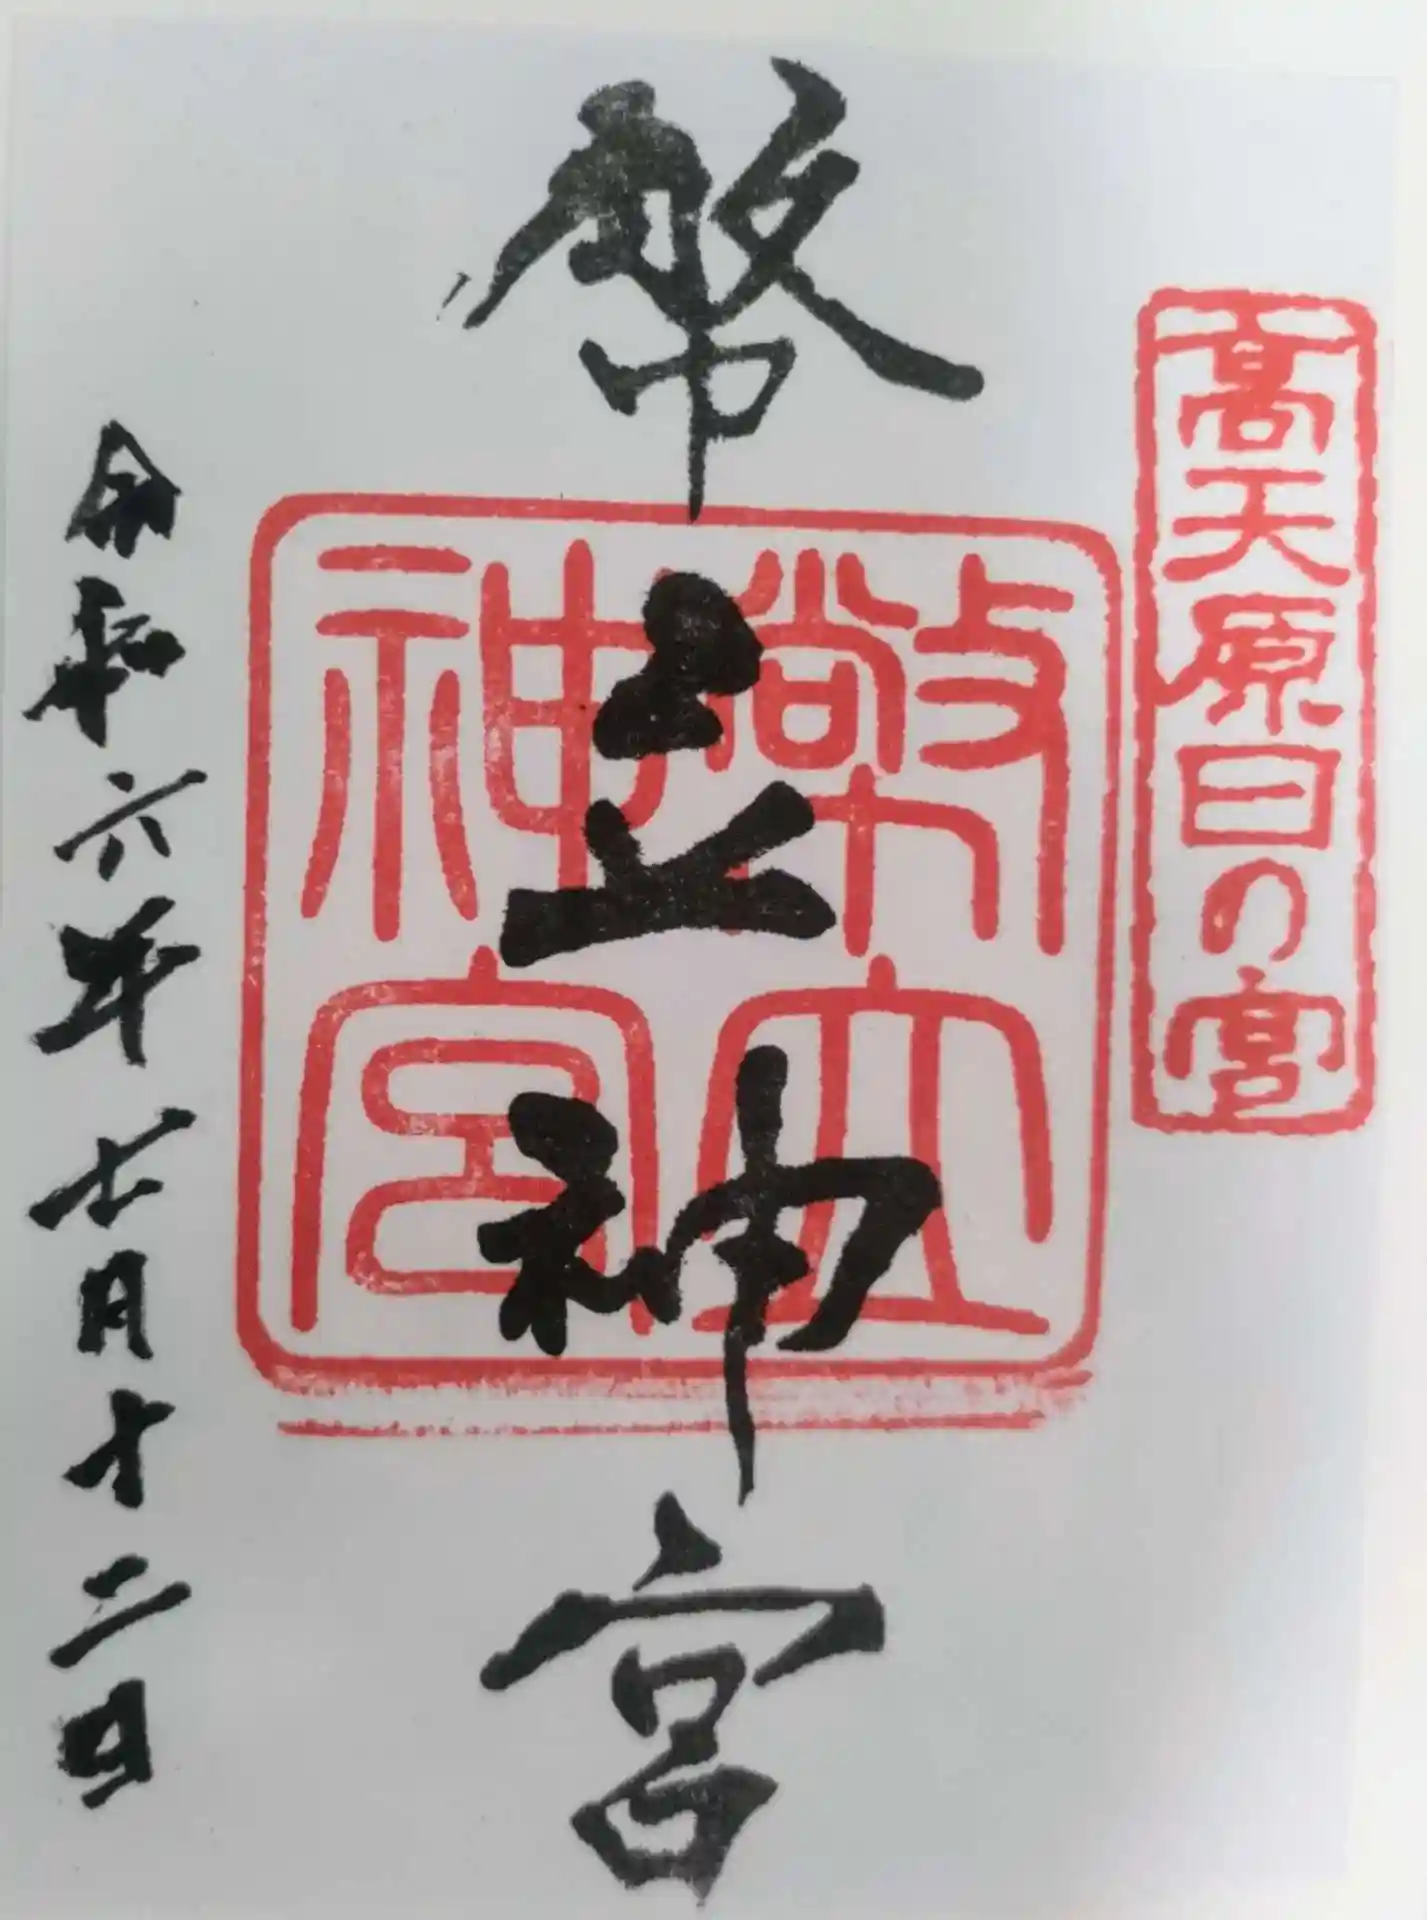 高天原日の宮
幣立神宮
幣立神宮
令和六年七月十二日